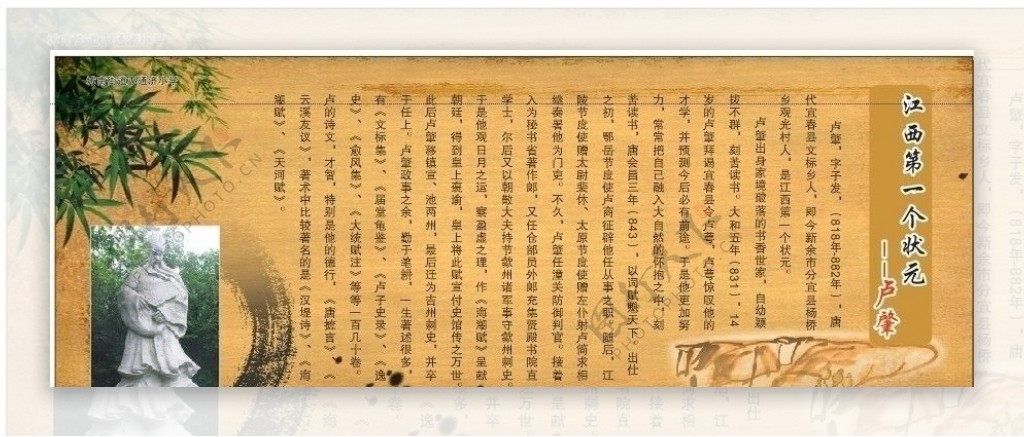 江西第一个状元
——卢肇
卢肇，字子发，（818年-882年），唐
代宜春县文标乡人，即今新余市分宜县杨桥
乡观光村人，是江西第一个状元。
卢肇出身家境破落的书香世家，自幼颖
拔不群，刻苦读书。大和五年（831），14
岁的卢肇拜谒宜春县令卢萼，卢萼惊叹他的
才学，并预测今后必有前途。于是他更加努
力，常常把自己融入大自然的怀抱之中，刻
苦读书，唐会昌三年（843），以词赋魁天下。出仕
之初，鄂岳节度使卢商征辟他任从事之职。随后，江
陵节度使赠太尉裴休、太原节度使赠左仆射卢简求相
继奏署他为门吏。不久，卢肇任潼关防御判官。接着
入为秘书省著作郎，又任仓部员外郎充集贤殿书院直
学士，尔后又以朝散大夫持节歙州诸军事守歙州刺史。
于是他观日月之运，察盈虚之理，作《海潮赋》呈献
朝廷，得到皇上褒谕，皇上将此赋宣付史馆传之万世。
此后卢肇移镇宣、池两州，最后迁为吉州刺史，并卒
于任上。卢肇政事之余，勤于笔耕，一生著述很多，
有《文标集》、《届堂龟鉴》、《卢子史录》、《逸
史》、《愈风集》、《大统赋注》等等一百几十卷。
卢的诗文，才智，特别是他的德行，《唐摭言》、《
云溪友议》，著术中比较著名的是《汉堤诗》、《海
潮赋》、《天河赋》。